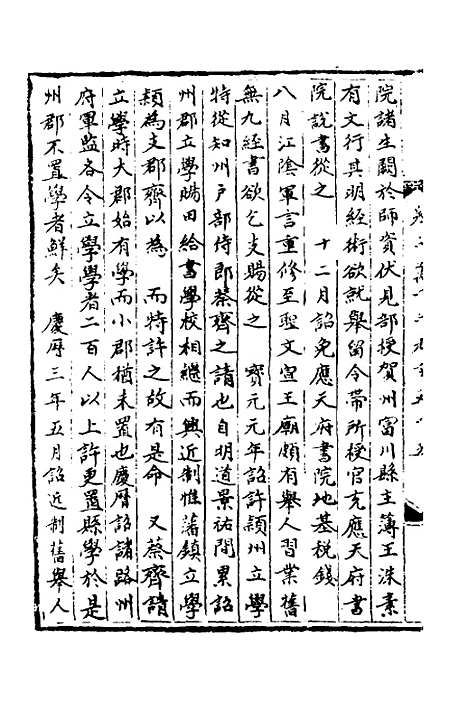 院諸生闕於師資伏見部授賀州富川縣主薄王洙素
有文行其明經術欲就舉留令帶所授官充應天府書
院說書從之　十二月詔免應天府書院地基稅錢
八月江陰軍言重修至聖文宣王廟頗有舉人習業舊
無九經書欲乞支賜從之　寶元元年詔許潁州立學
特從知州户部侍郎蔡齊之請也自明道景祐間累詔
州郡立學賜田給書學校相繼而興近制惟藩鎮立學
潁為支郡齊以為　而特許之故有是命　又蔡齊請
立學時大郡始有學而小郡猶未置也慶曆詔諸路州
府軍監各令立學學者二百人以上許更置縣學於是
州郡不置學者鮮矣　慶曆三年五月詔近制舊舉人